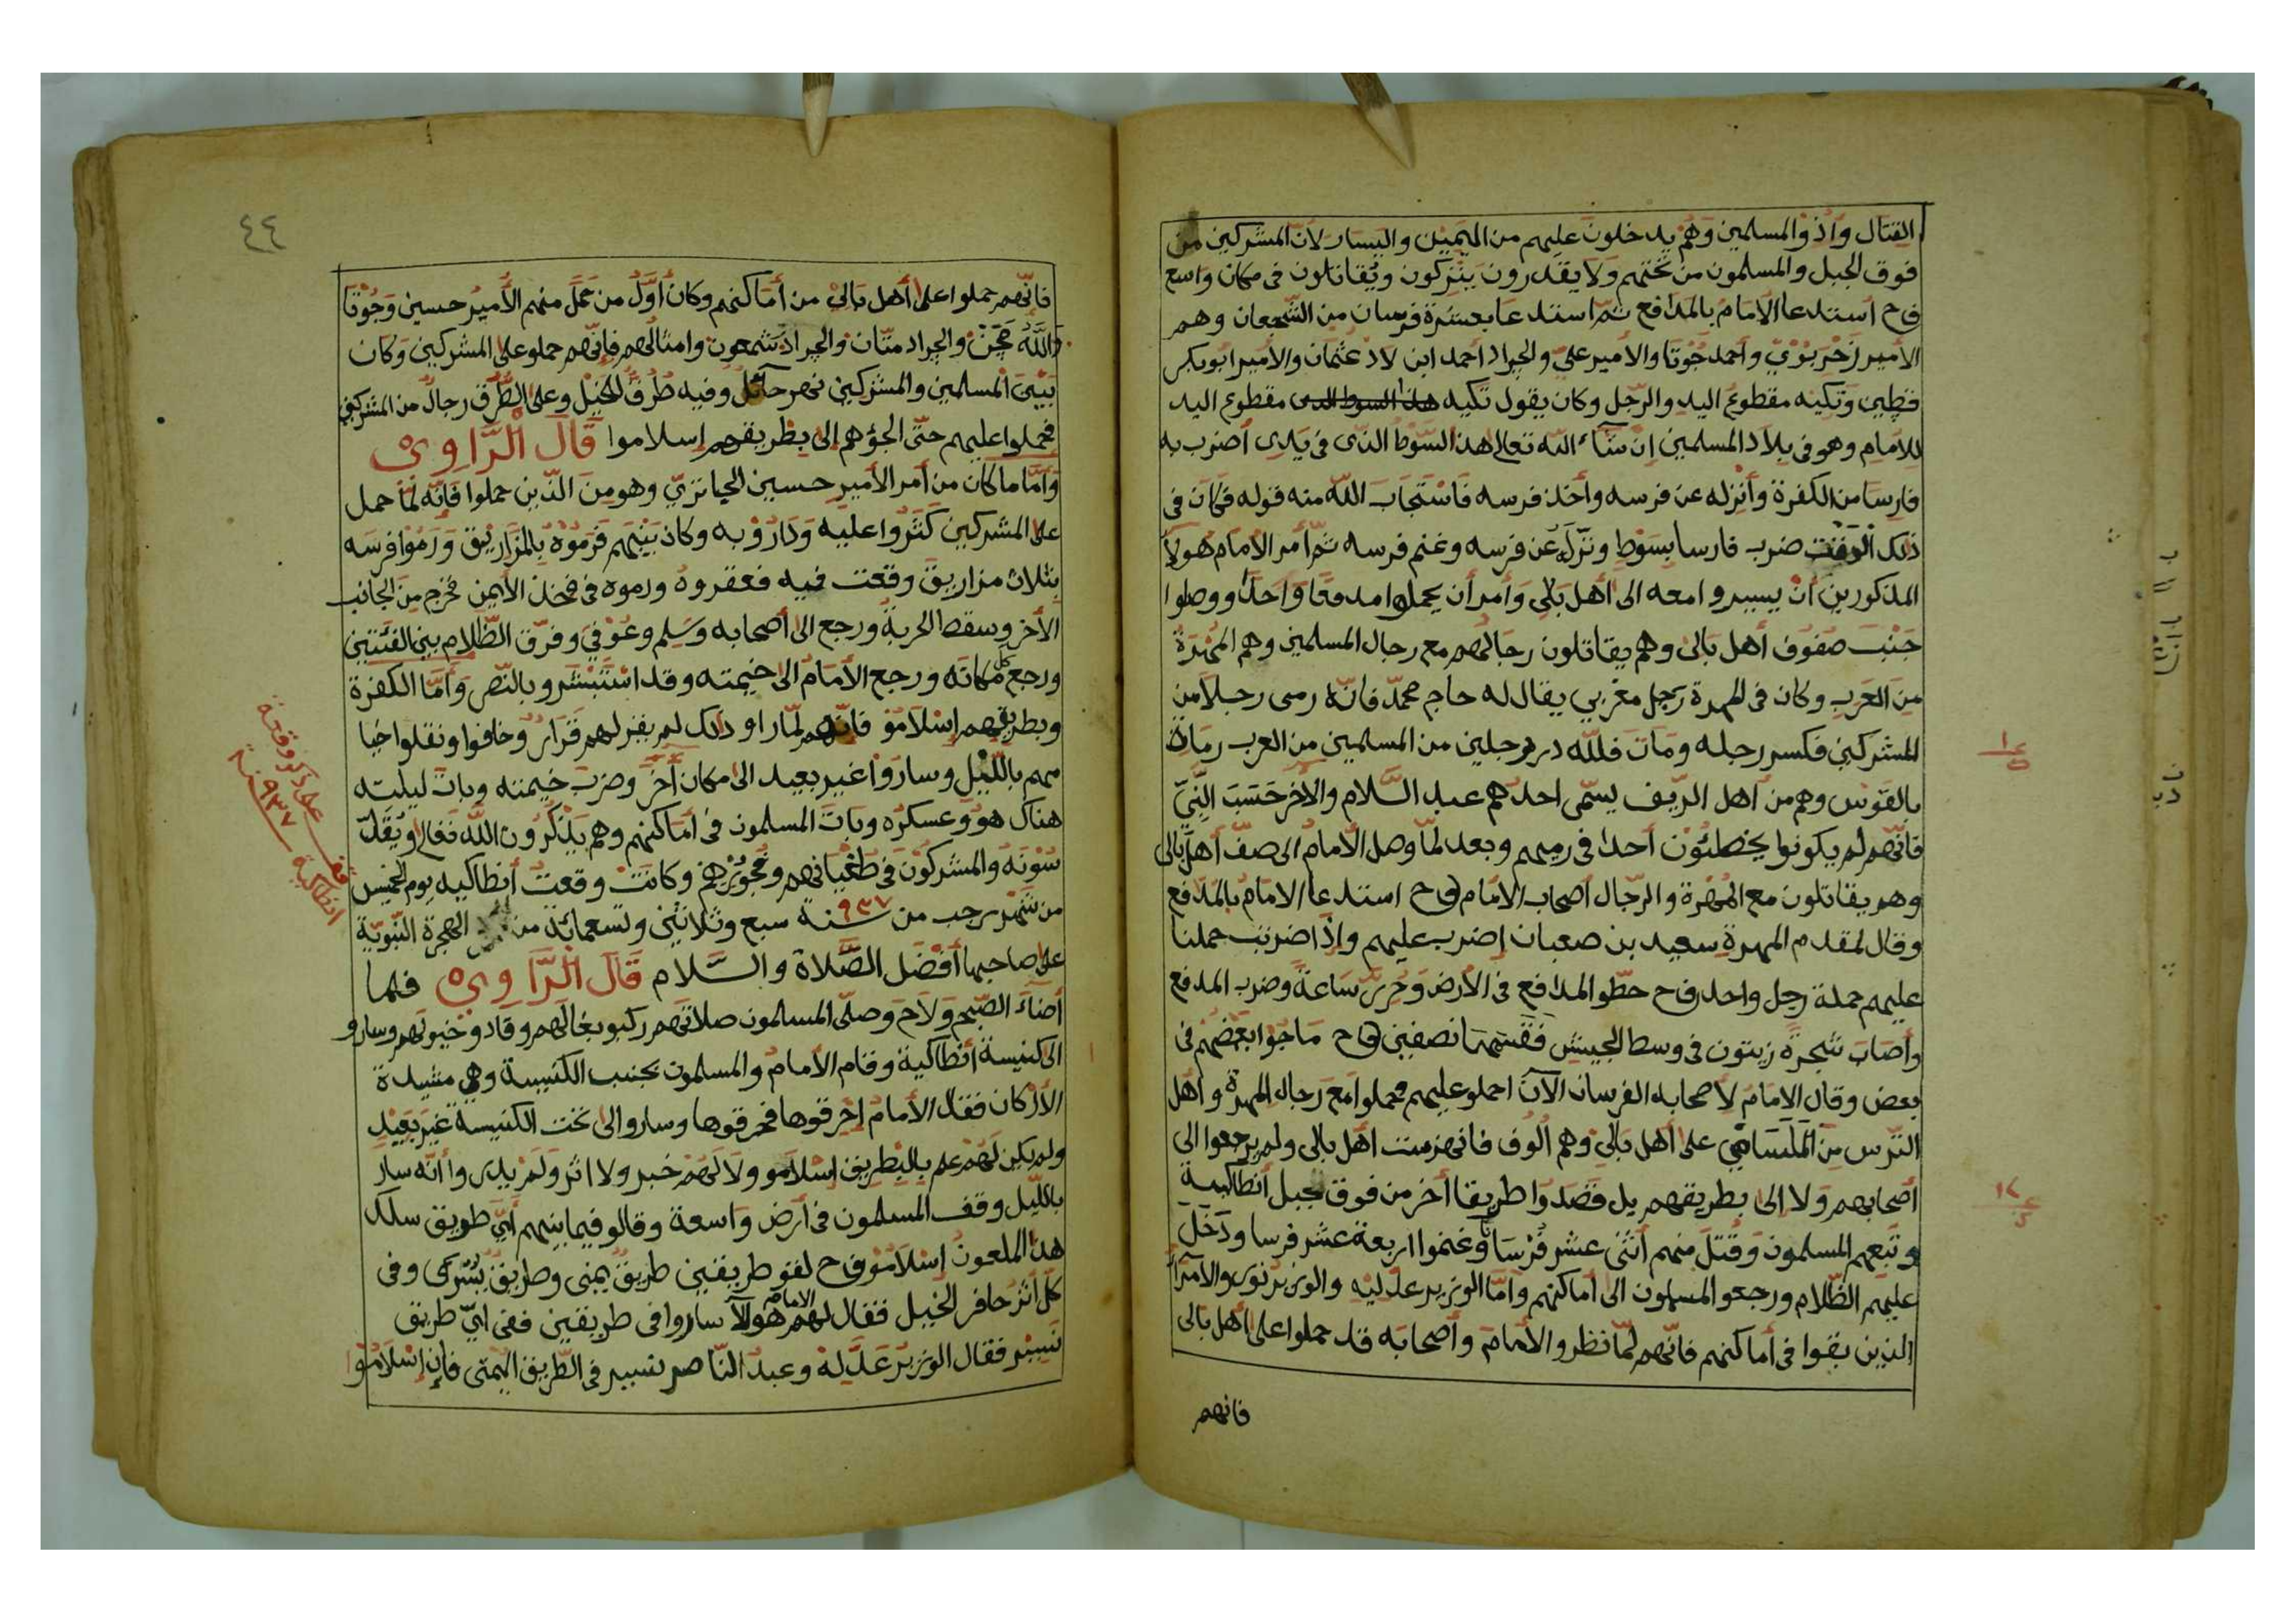 القتال وأذوْ المسلمين وَهُمْ يدخلونَ عليهم من اليَمِيْن واليسار لأنّ المشركين من
فوق الجبل والمسلمون من تحْتهم ولا يقدرون ينْزكون ويُقاتلون فى مكان واسع
فح أستدعا الأمامُ بالمدافع ثمّ استدعا بعشرة فرسان من الشّجعان وهم
الأمير زَحْرَبُوْيْ وأحمد جُوْتَا والأمير عليّ والجراد أحمد ابن لاد عثمان والأمير ابوبكر
قطِين وَتَكيه مقطوعُ اليد والرّجل وكان يقول تكيه مقطوع اليد
للأمام وهو فى بلاد المسلمين إنْ شآء الله تعالى هذا السّوْط الذّى فى يَدِى أضرب به
فارسا من الكفرة وأنزله عن فرسه وأخذ فرسه فاسْتجَابَ اللّه منه قوله فكان فى
ذلك الوقت ضرب فارسا بسَوْطٍ ونزّله عَن فرسه وغنم فرسه ثمّ أمر الأمام هولآ
المذكورين أنْ يسيرو امعه الى أهل بَالِى وَأمر أن يحملوا مدفعًا وَاحدًا ووصلوا
جَنْبَ صفوف أهل بالى وهم يقاتلون رجالهم مع رجال المسلمين وهم المُهْرَةُ
مِنَ العَرب وكان فى المهرة رجل مغْربي يقال له حاج محمّد فانّه رمى رجلا من
المشركين فكسر رجله ومات فللّه در رجلين من المسلمين من العرب رماة
بالقوْس وهم من أهل الرّيف يسمّى احدهم عبد السَّلام والأخر حَسَبَ النَّبيّ
فانّهم لم يكونوا يخطئوْن أحدا فى رميهم وبعد لمّا وصل الأمام الى صفّ أهل بالى
وهم يقاتلون مع المُهْرة والرّجال أصحاب الامام فح استدعا الامامُ بالمدفع
وقال لمقدم المهرة سعيد بن صعبان إضرب عليهم وإذَا ضربت حملنا
عليهم حملة رجل واحد فح حطّو المدافع فى الأرض وَحرّر سَاعةً وضرب المدفع
وأصاب شجرة زيتون فى وسط الجيش فقسمهَا نصفين فح مَاجُوا بَعْضُهم فى
بعض وقال الامامُ لأصحابه الفرسان الآن احملو عليهم فحملوا مع رجال المهرة وأهل
التّرس مِنْ المَلَسَاىِ على أهل بَالِى وهم ألوف فانهزمت أهل بالى ولم يرجعوا الى
أصحابهم وَلا إلى بطريقهم بل قصَدوا طريقا أخر من فوق جبل أنطاكية
وتبعهم المسلمون وقُتلَ منهم أثنى عشر فُرْسانًا وغنموا اربعة عشر فرسا ودَخل
عليهم الظّلام ورجعو المسلمون الى أماكنهم وأمّا الوزير عدليه والوزير نورو الأمرآ
الذين بقوا فى أماكنهم فانّهم لمّا نظرو الأمامَ وأصحابه قد حملوا على أهل بالى
فانهم
٤٤
فانّهم حملوا على أهل بَالىْ من أماكنهم وكان أوّلُ من حَمَلَ منهم الأميرُ حسين وَجُوْتَا
والجراد متّان والجراد شمعون وامثالهم فإنّهم حملو على المشركين وكان
بَيْنَ المسلمين والمشركين نهر حآئل وفيه طُرقُ للخيْل وعلى الطّرق رجالٌ من المشركين
فحملوا عليهم حتّى الجؤهم إلى بطريقهم إسلاموا قَالَ الرَّاوِيْ
وَأمّا ما كان من أمر الأميرِ حسين الجياتريّ وهو مِنَ الذّين حملوا فانّه لمّا حمل
على المشركين كَثَرُوا عليه وَدَارُوْ به وكان بَيْنَهم فَرَموْهُ بالمَزَاريْق وَرَمُوْا فرسَه
بثلاث مزاريقَ وقعت فيه فعقروه ورموه فى فخذه الأيمن فخرج من الجانب
الأخر وسقط الحربةُ ورجع الى أصحابه وَسَلِم وعُوْفيَ وفرّق الظّلام بين الفئتين
ورجع كل مكانَه ورجع الأمامُ الى خيمته وقد اسْتَبْشَرو بالنّصر وَأمّا الكفرة
وبطريقهم إسْلامُوْ فانّهم لمّا راو ذلك لم يقر لهم قَرَارٌ وخافوا ونقلوا خيا
مهم باللّيْل وسارُوْا غير بعيد الى مكان أخَرَ وضربَ خيمته وباتَ ليلته
هناك هوَ وَعسكره وباتَ المسلمون فى أماكنهم وهم يَذْكُرُون اللّه تعالى و
سُوْنَهُ والمشركونَ فى طُغْيانهم وكانتْ وقعتُ أنطاكيه يوم الخميس
من شهر رجب من سنة ٩٣٧ سبع وثلاثيْن وتسعمائة من الهجرة النّبويّة
على صاحبها أفْضَل الصَّلاة والسَّلام قَالَ الْرَّاوِيْ فلما
أضآءَ الصّبْح وَلاَحَ وَصلّى المسلمون صلاتَهم ركبو بغالَهم وقادو خيولَهم وسارو
الى كنيسة أنطاكية وقام الأمامُ والمسلمون بجنب الكنيسة وهى مشيدة
الأركان فقال الأمامُ إحْرقوها فحرقوها وساروا الى تحت الكنيسة غَيْرَ بَعِيْدٍ
ولم يكن لَهُمْ علم بالبطريق إسْلاَمو ولا لَهُمْ خبر ولا اثر ولَمْ يدروا أنّه سار
باللّيل وقف المسلمون فى أرض وَاسعة وقالو فيما بينهم أيّ طريق سلك
هذا الملعونُ إسْلاَمُوْ فح لقو طريقين طريقُ يمنى وطريقُ يُسْرَى وفى
كلّ أثرُ حافر الخيل فقال لهم الامام هَوُلآ ساروا فى طريقين ففى ايّ طريق
نَسِيْر فقال الوزيرُ عَدَّلِهْ وعبدُ النّاصر نسير فى الطّريق اليُمْنَى فإن إسْلاَمُوْا
على ذكر وقعة
انطاكية سنة ٩٣٧